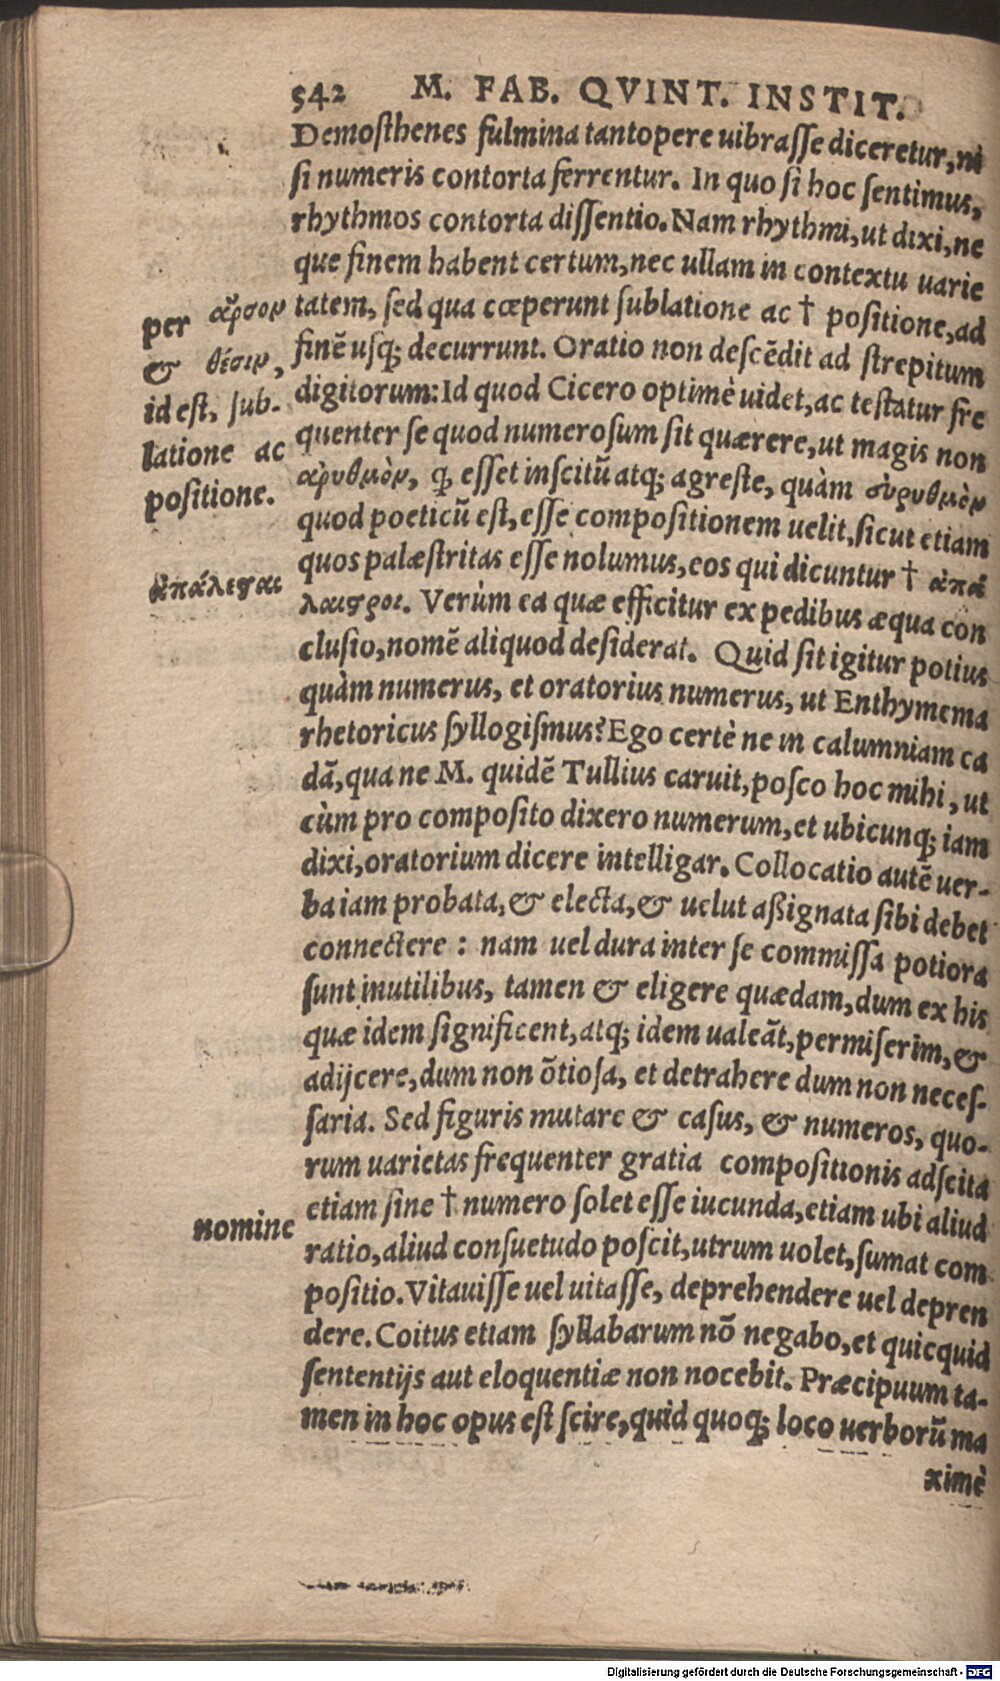 542 M. FAB. QVINT. INSTIT.
Demosthenes fulmina tantopere uibrasse diceretur, ni
si numeris contorta ferrentur. In quo si hoc sentimus,
rhythmos contorta dissentio. Nam rhythmi, ut dixi, ne
que finem habent certum, nec ullam in contextu uarie
tatem, sed qua cœperunt sublatione ac † positione, ad
finẽ usq; decurrunt. Oratio non descẽdit ad strepitum
digitorum: Id quod Cicero optimè uidet, ac testatur fre
quenter se quod numerosum sit quærere, ut magis non
ἀρυθμὸν, q̃ esset inscitũ atq; agreste, quàm σύρυθμὸν
quod poeticũ est, esse compositionem uelit, sicut etiam
quos palæstritas esse nolumus, eos qui dicuntur † ἀπά
λαιςροι. Verùm ea quæ efficitur ex pedibus æqua con
clusio, nomẽ aliquod desiderat. Quid sit igitur potius
quàm numerus, et oratorius numerus, ut Enthymema
rhetoricus syllogismus? Ego certè ne in calumniam ca
dã, qua ne M. quidẽ Tullius caruit, posco hoc mihi, ut
cùm pro composito dixero numerum, et ubicunq; iam
dixi, oratorium dicere intelligar. Collocatio autẽ uer-
ba iam probata, & electa, & uelut aßignata sibi debet
connectere : nam uel dura inter se commissa potiora
sunt inutilibus, tamen & eligere quædam, dum ex his
quæ idem significent, atq; idem ualeãt, permiserim, &
adijcere, dum non õtiosa, et detrahere dum non neces-
saria. Sed figuris mutare & casus, & numeros, quo-
rum uarietas frequenter gratia compositionis adscita
etiam sine † numero solet esse iucunda, etiam ubi aliud
ratio, aliud consuetudo poscit, utrum uolet, sumat com
positio. Vitauisse uel uitasse, deprehendere uel depren
dere. Coitus etiam syllabarum nõ negabo, et quicquid
sententijs aut eloquentiæ non nocebit. Præcipuum ta-
men in hoc opus est scire, quid quoq; loco uerborũ ma
ximè
per ἄρσον
& θέσιν,
id est, sub-
latione ac
positione.
ἀπάλεςαι
nomine
Digitalisierung gefördert durch die Deutsche Forschungsgemeinschaft - DFG